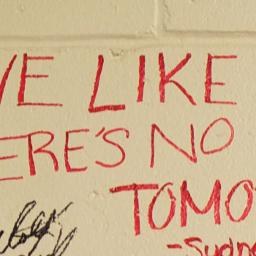 VE LIKE
ERE'S NO
TOMO
-Sydn